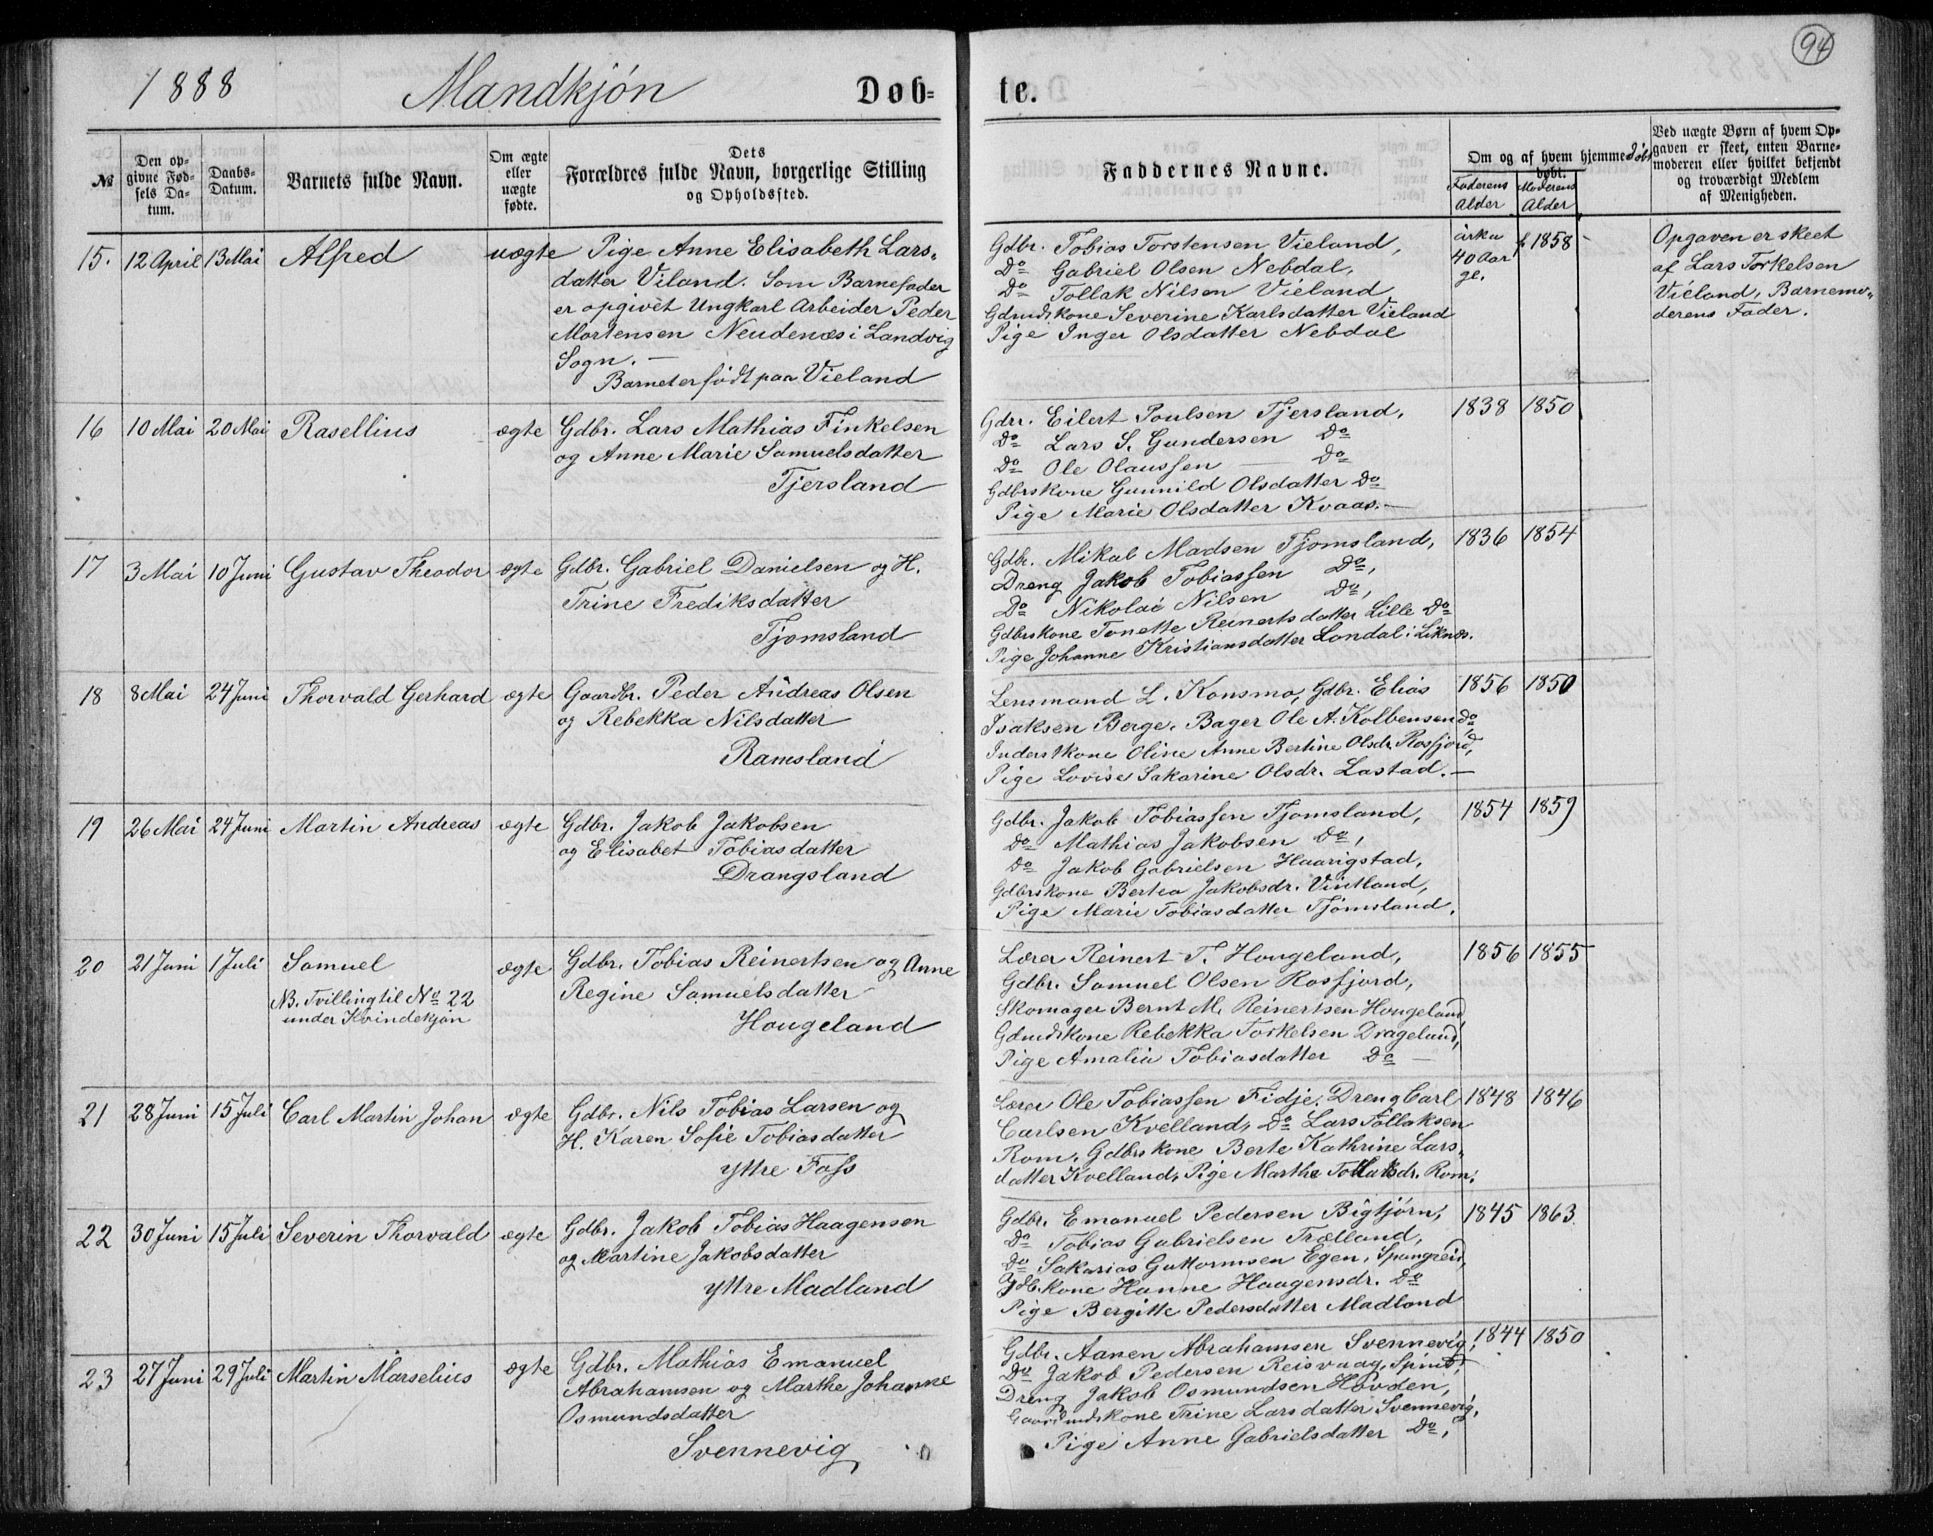 94
1888 Mandkjøn Døb-
te.
№
Den op-
givne Fød-
sels Da-
tum.
Daabs-
Datum.
Barnets fulde Navn.
Om ægte
eller
uægte
fødte.
Dets
Forældres fulde Navn, borgerlige Stilling
og Opholdsted.
Faddernes Navne.
Om og af hvem hjemmedøbt
døbt.
Faderens
Alder
Moderens
Alder
Ved uægte Børn af hvem Op-
gaven er skeet, enten Barne-
moderen eller hvilket bekjendt
og troværdigt Medlem
af Menigheden.
15. 12 April 13 Mai Alfred uægte Pige Anne Elisabeth Lars-
datter Viland. Som Barnefader
er opgivet Ungkarl Arbeider Peder
Mortensen Neudenæs i Landvig
Sogn. —
Barnet er født paa Vieland
Gdbr. Tobias Torstensen Vieland,
Do Gabriel Olsen Nebdal,
Do Tollak Nilsen Vieland
Gdmdskone Severine Karlsdatter Vieland
Pige Inger Olsdatter Nebdal
cirka
40 Aar
gl.
f. 1858
Opgaven er skeet
af Lars Torkelsen
Vieland, Barnemo-
derens Fader.
16 10 Mai 20 Mai Rasellius ægte Gdbr. Lars Mathias Finkelsen
og Anne Marie Samuelsdatter
Tjersland
Gdrr. Eilert Poulsen Tjersland, 1838 1850
Do Lars S. Gundersen Do
Do Ole Olaussen — Do
Gdbrskone Gunnild Olsdatter Do
Pige Marie Olsdatter Kvaas. —
17 3 Mai 10 Juni Gustav Theodor ægte Gdbr. Gabriel Danielsen og H.
Trine Frediksdatter
Tjomsland
Gdbr. Mikal Madsen Tjomsland, 1836 1854
Dreng Jakob Tobiassen Do,
Do Nikolai Nilsen Do,
Gdbrskone Tonette Reinertsdatter Lille Do
Pige Johanne Kristiansdatter Londal i Liknes.
18 8 Mai 24 Juni Thorvald Gerhard ægte Gaardbr. Peder Andreas Olsen
og Rebekka Nilsdatter
Ramsland
Lensmand L. Konsmo, Gdbr. Elias 1856 1850
Isaksen Berge. Bager Ole A. Kolbensen do,
Inderstkone Oline Anne Bertine Olsdr. Rosfjord,
Pige Lovise Sakarine Olsdr. Lastad. —
19 26 Mai 24 Juni Martin Andreas ægte Gdbr. Jakob Jakobsen
og Elisabet Tobiasdatter
Drangsland
Gdbr. Jakob Tobiassen Tjomsland, 1854 1859
Do Mathias Jakobsen Do,
Do Jakob Gabrielsen Haarigstad,
Gdbrskone Bertea Jakobsdr. Vintland,
Pige Marie Tobiasdatter Tjomsland.
20 21 Juni 1 Juli Samuel ægte Gdbr. Tobias Reinertsen og Anne
NB. Tvilling til No 22
under Kvindekjøn
Regine Samuelsdatter
Hougeland
Lærer Reinert T. Hougeland, 1856 1855
Gdbr. Samuel Olsen Rosfjord,
Skomager Bernt M. Reinertsen Hougeland
Gdmdskone Rebekka Torkelsen Drageland,
Pige Amalia Tobiasdatter Do —
21 28 Juni 15 Juli Carl Martin Johan ægte Gdbr. Nils Tobias Larsen og
H. Karen Sofie Tobiasdatter
Yttre Foss
Lærer Ole Tobiassen Fidje. Dreng Carl 1848 1846
Carlsen Kvelland, Do Lars Tollaksen
Rom. Gdbrskone Berte Kathrine Lars-
datter Kvelland, Pige Marthe Tollaksdr. Rom.
22 30 Juni 15 Juli Severin Thorvald ægte Gdbr. Jakob Tobias Haagensen
og Martine Jakobsdatter
Yttre Madland
Gdbr. Emanuel Pedersen Bigtjørn, 1845 1863
Do Tobias Gabrielsen Trælland,
Do Sakarias Guttormsen Egen, Spangreid,
Gdbkone Hanne Haagensdr. Do
Pige Bergitte Pedersdatter Madland
23 27 Juni 29 Juli Martin Marselius ægte Gdbr. Mathias Emanuel
Abrahamsen og Marthe Johanne
Osmundsdatter
Svennevig
Gdbr. Aanen Abrahamsen Svennevig, 1844 1850
Do Jakob Pedersen Reisvaag, Spind,
Dreng Jakob Osmundsen Hovden,
Gaardmdskone Trine Larsdatter Svennevig,
Pige Anne Gabrielsdatter Do,